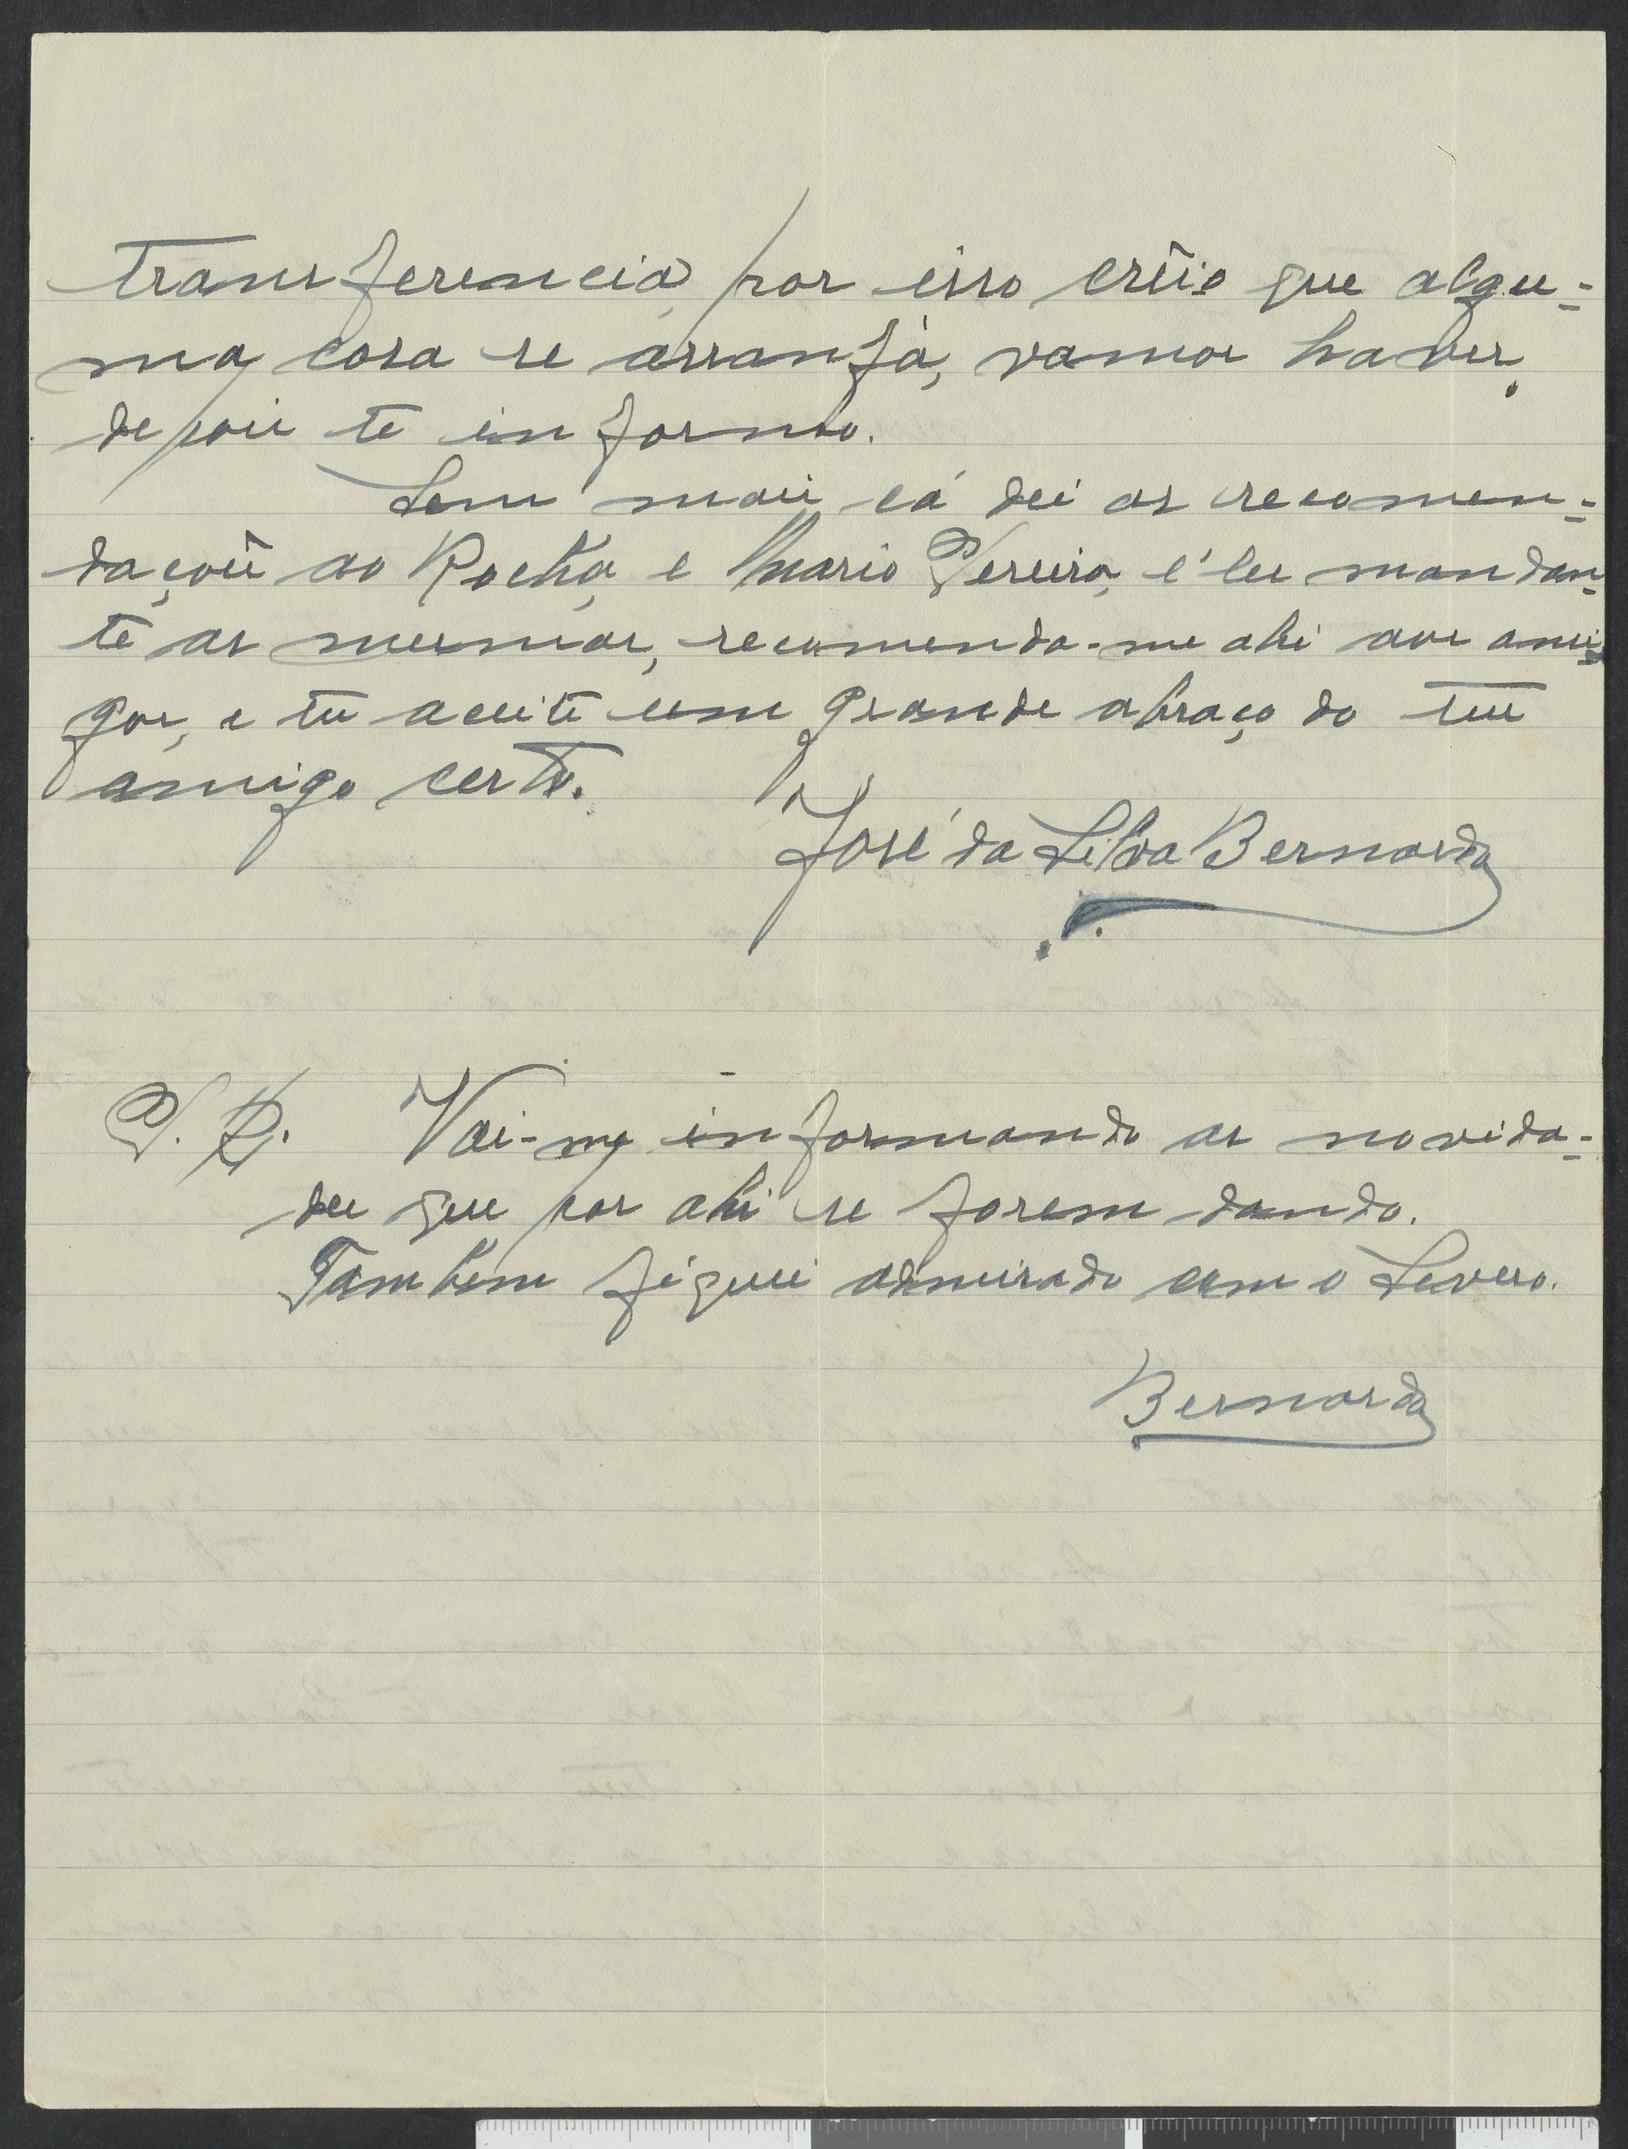 transferencia, por isso crêio que algu=
ma cosa se arranjà, vamos haver,
depois te informo.
Sem mais cá dei as recomen=
dações ao Rocha, e Mario Pereira, e'les mandan=
te as mesmas, recomenda-me ahi aos ami=
gos, e tu aceite um grande abraço do teu
amigo certo.
José da Silva Bernardo
P. S. Vai-me informando as novida=
des que por ahi se forem dando.
Tambem fiquei admirado com o Severo.
Bernardo